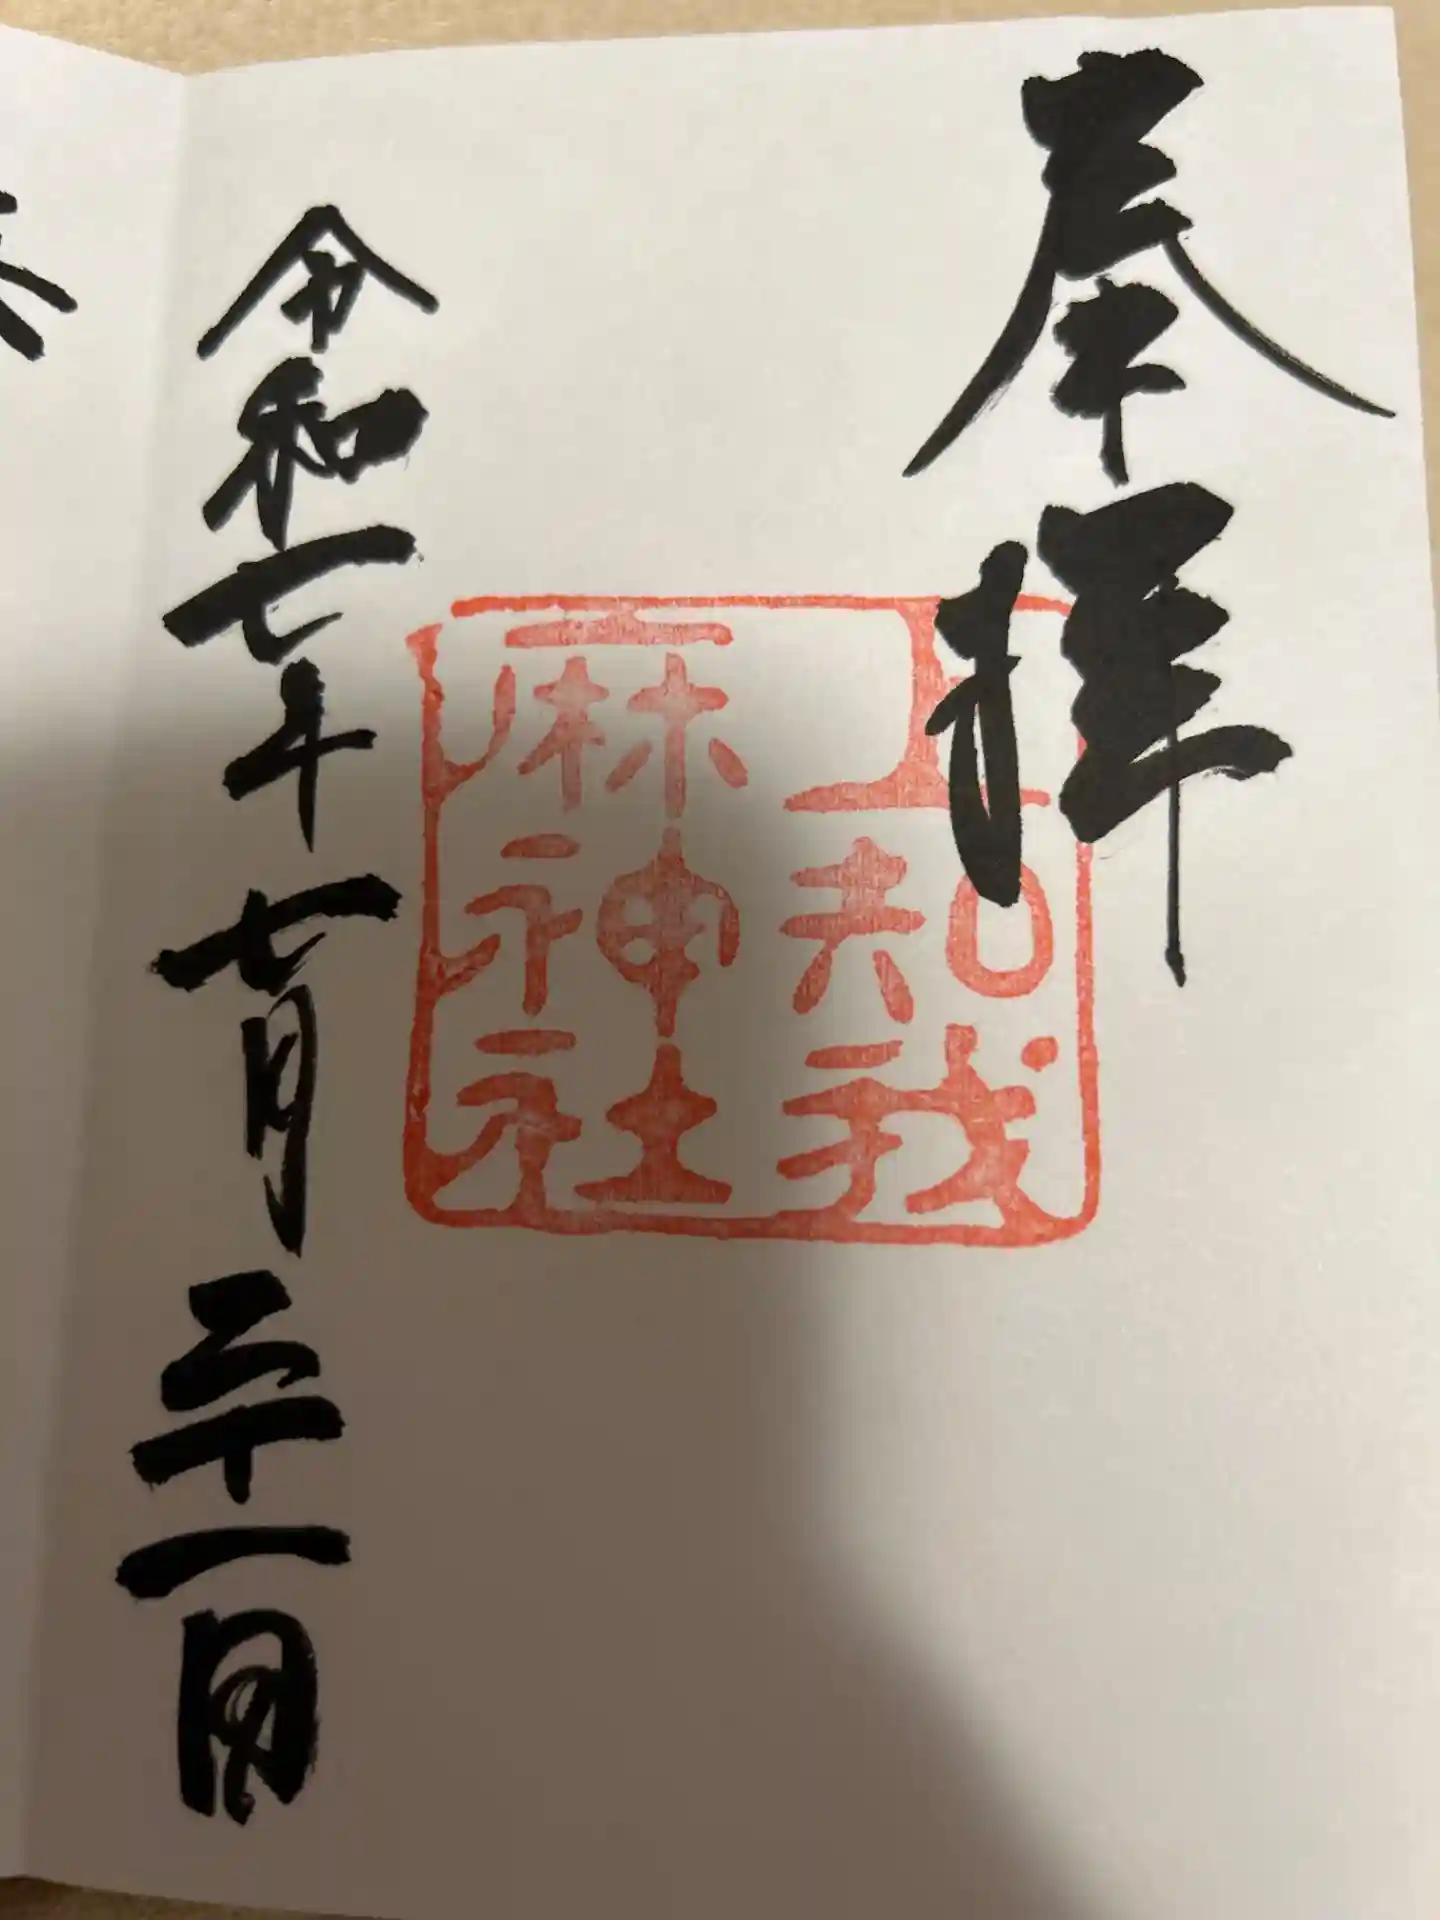 奉拝
上知我
麻神社
令和七年七月二十一日